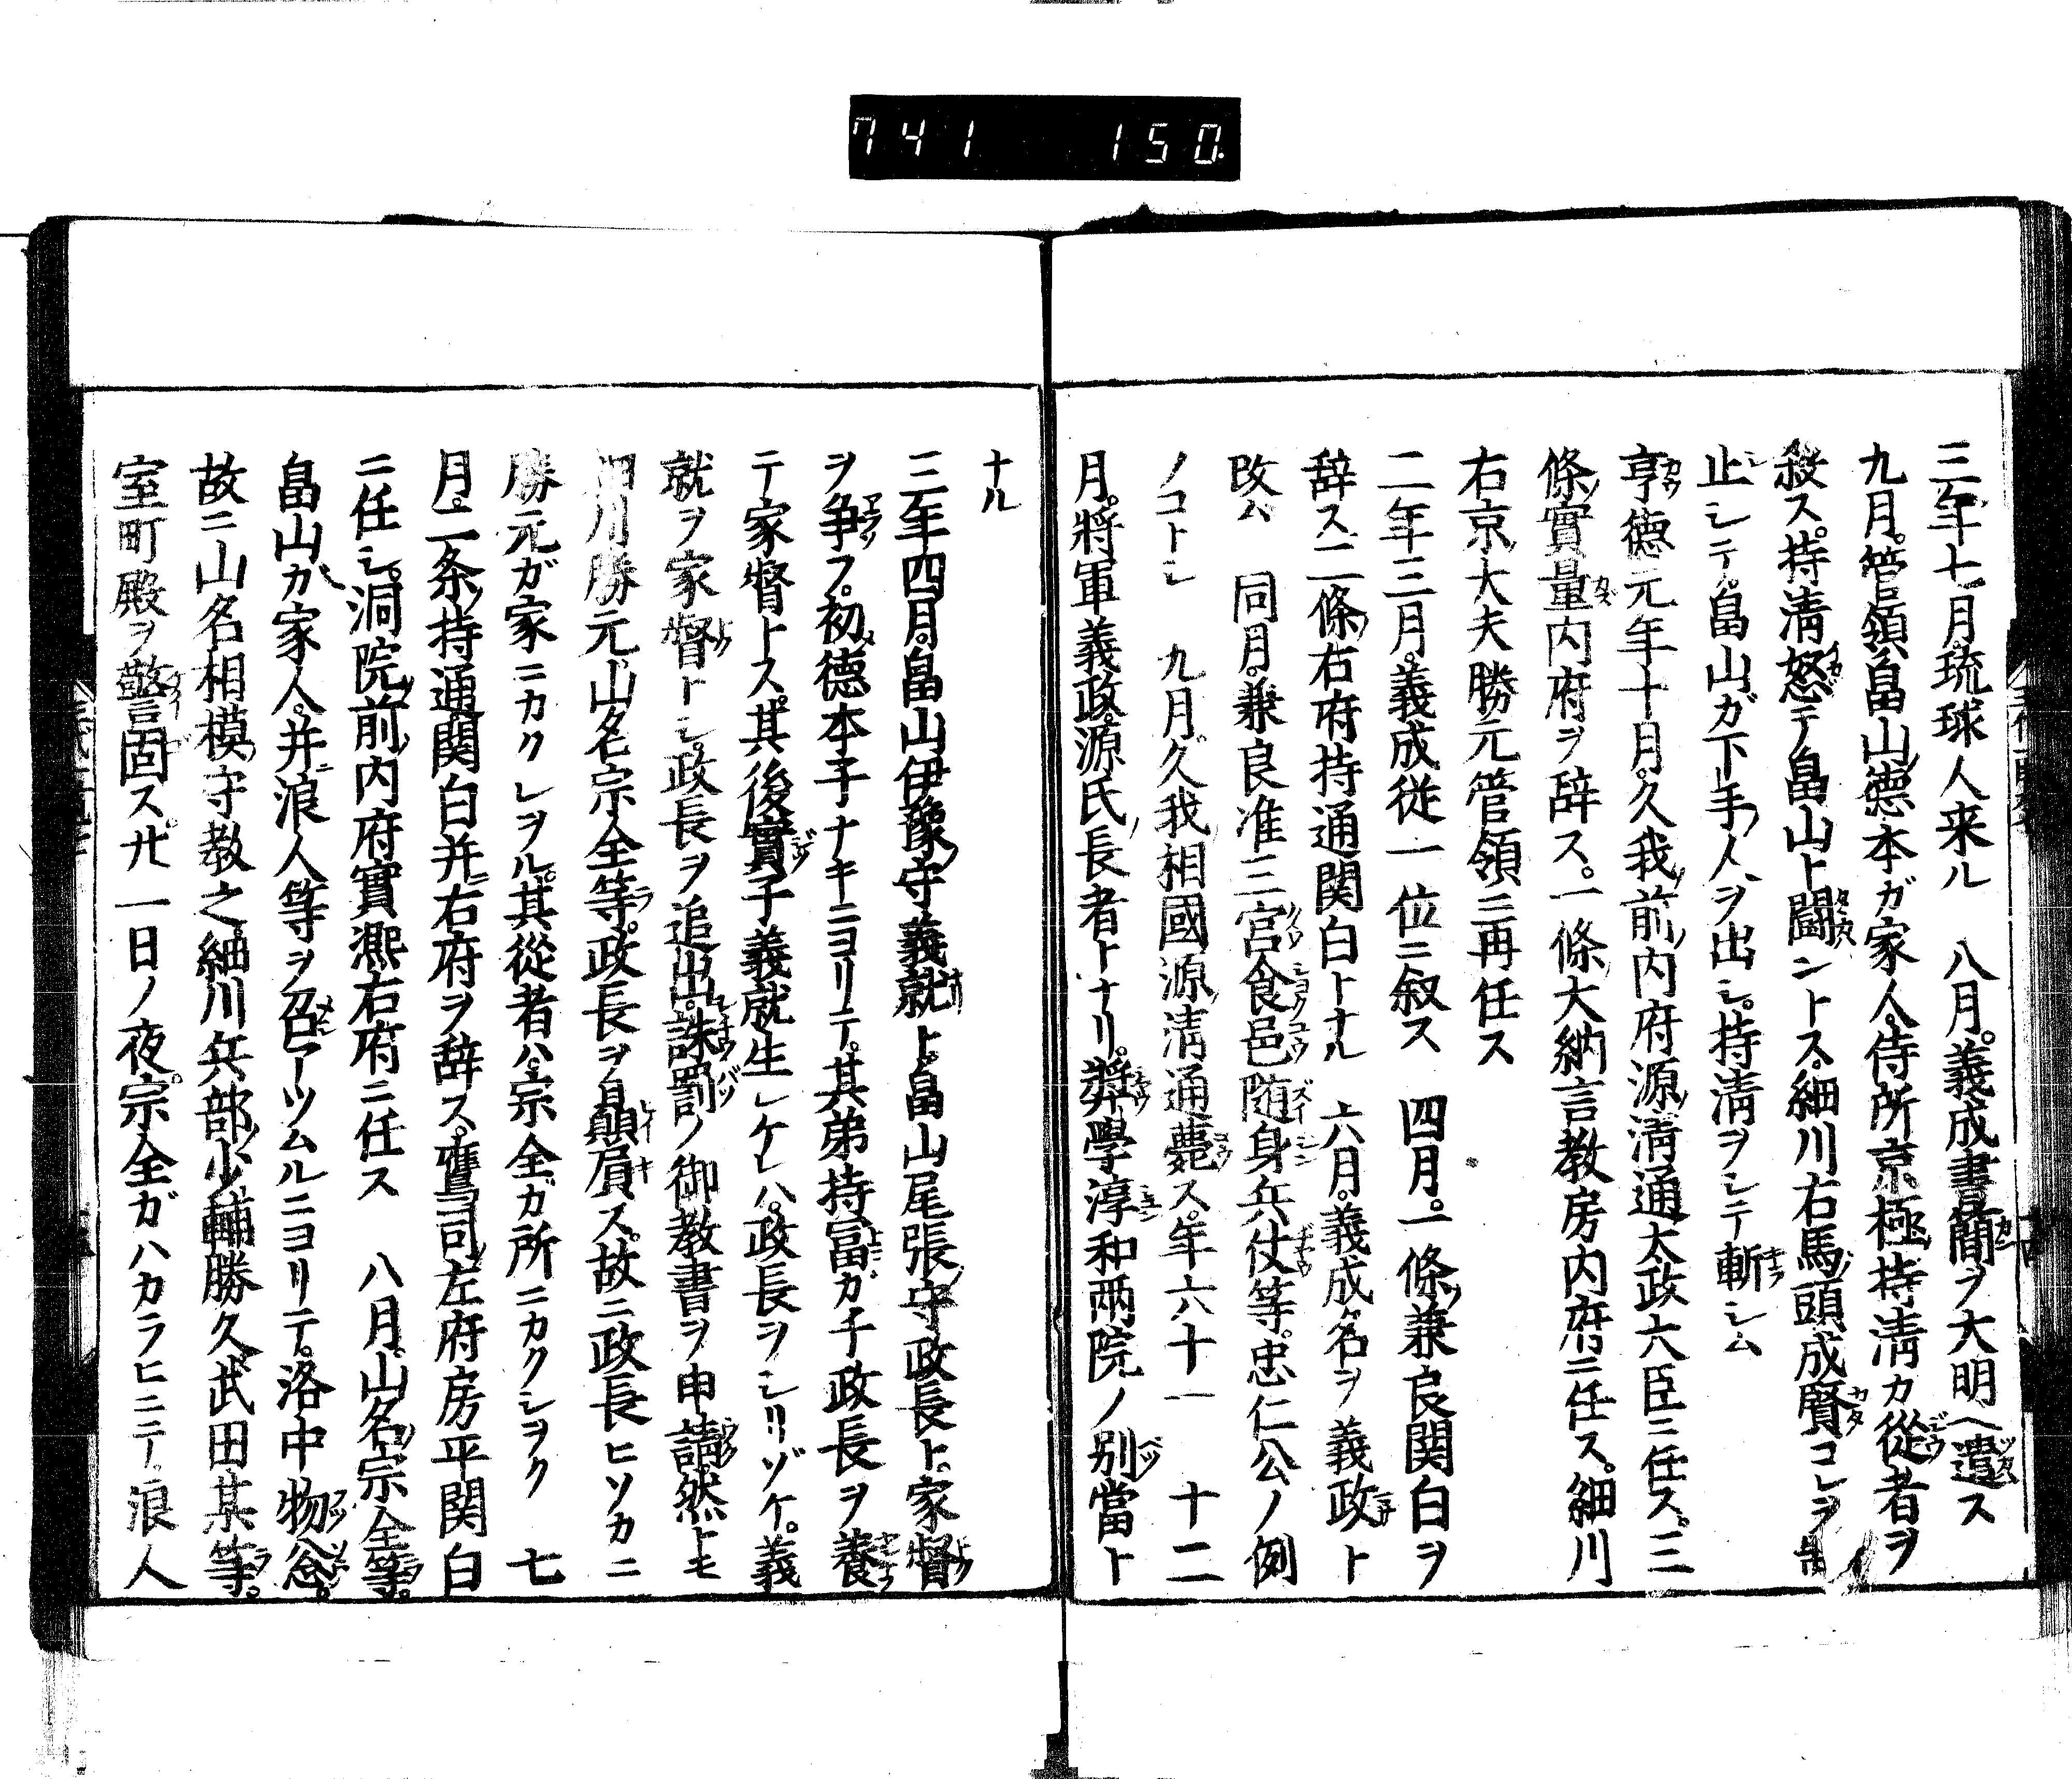 741 150.
三年七月。琉球人来ル　八月。義成書簡ヲ大明ヘ遣ス
九月。管領畠山德本ガ家人。侍所京極持淸カ從者ヲ
殺ス。持淸怒テ畠山ト鬪ントス。細川右馬頭成賢コレヲ
止シテ。畠山ガ下手人ヲ出シ。持淸ヲシテ斬シム
享德元年十月。久我前内府源淸通太政大臣ニ任ス。三
條實量内府ヲ辞ス。一條大納言教房内府ニ任ス。細川
右京大夫勝元管領ニ再任ス
二年三月。義成從一位ニ叙ス　四月。一條兼良関白ヲ
辞ス二條右府持通関白トナル　六月。義成名ヲ義政ト
改ム　同月。兼良准三宮食邑随身兵仗等。忠仁公ノ例
ノコトシ　九月。久我相國源淸通薨ス。年六十一　十二
月。將軍義政。源氏長者トナリ。奬學淳和兩院ノ別當ト
ナル
三年四月。畠山伊豫守義就ト。畠山尾張守政長ト。家督
ヲ爭フ。初德本子ナキニヨリテ。其弟持冨ガ子政長ヲ養
テ家督トス。其後實子義就生レケレハ。政長ヲシリゾケ。義
就ヲ家督トシ。政長ヲ追出。誅罰ノ御教書ヲ申請。然トモ
細川勝元山名宗全等。政長ヲ贔屓ス。故ニ政長ヒソカニ
勝元ガ家ニカクレヲル。其從者ハ。宗全ガ所ニカクシヲク　七
月。二条持通関白幷右府ヲ辞ス。鷹司左府房平関白
ニ任シ。洞院前内府實凞右府ニ任ス　八月。山名宗全等。
畠山ガ家人。幷浪人等ヲ召アツムルニヨリテ。洛中物忩。
故ニ山名相模守教之細川兵部少輔勝久武田某等。
室町殿ヲ警固ス。廿一日ノ夜。宗全ガハカラヒニテ。浪人